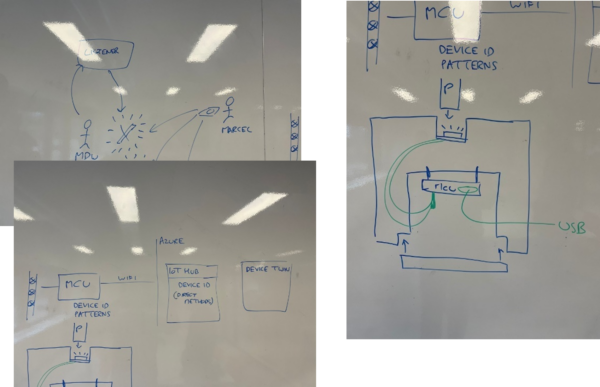 LISTENER
MARCEL
MPU
AZURE
MCU
WIFI
DEVICE ID
PATTERNS
P
IOT HUB
DEVICE ID
(DIRECT
METHODS)
DEVICE TWIN
MCU
WIFI
DEVICE ID
PATTERNS
P
MCU
USB